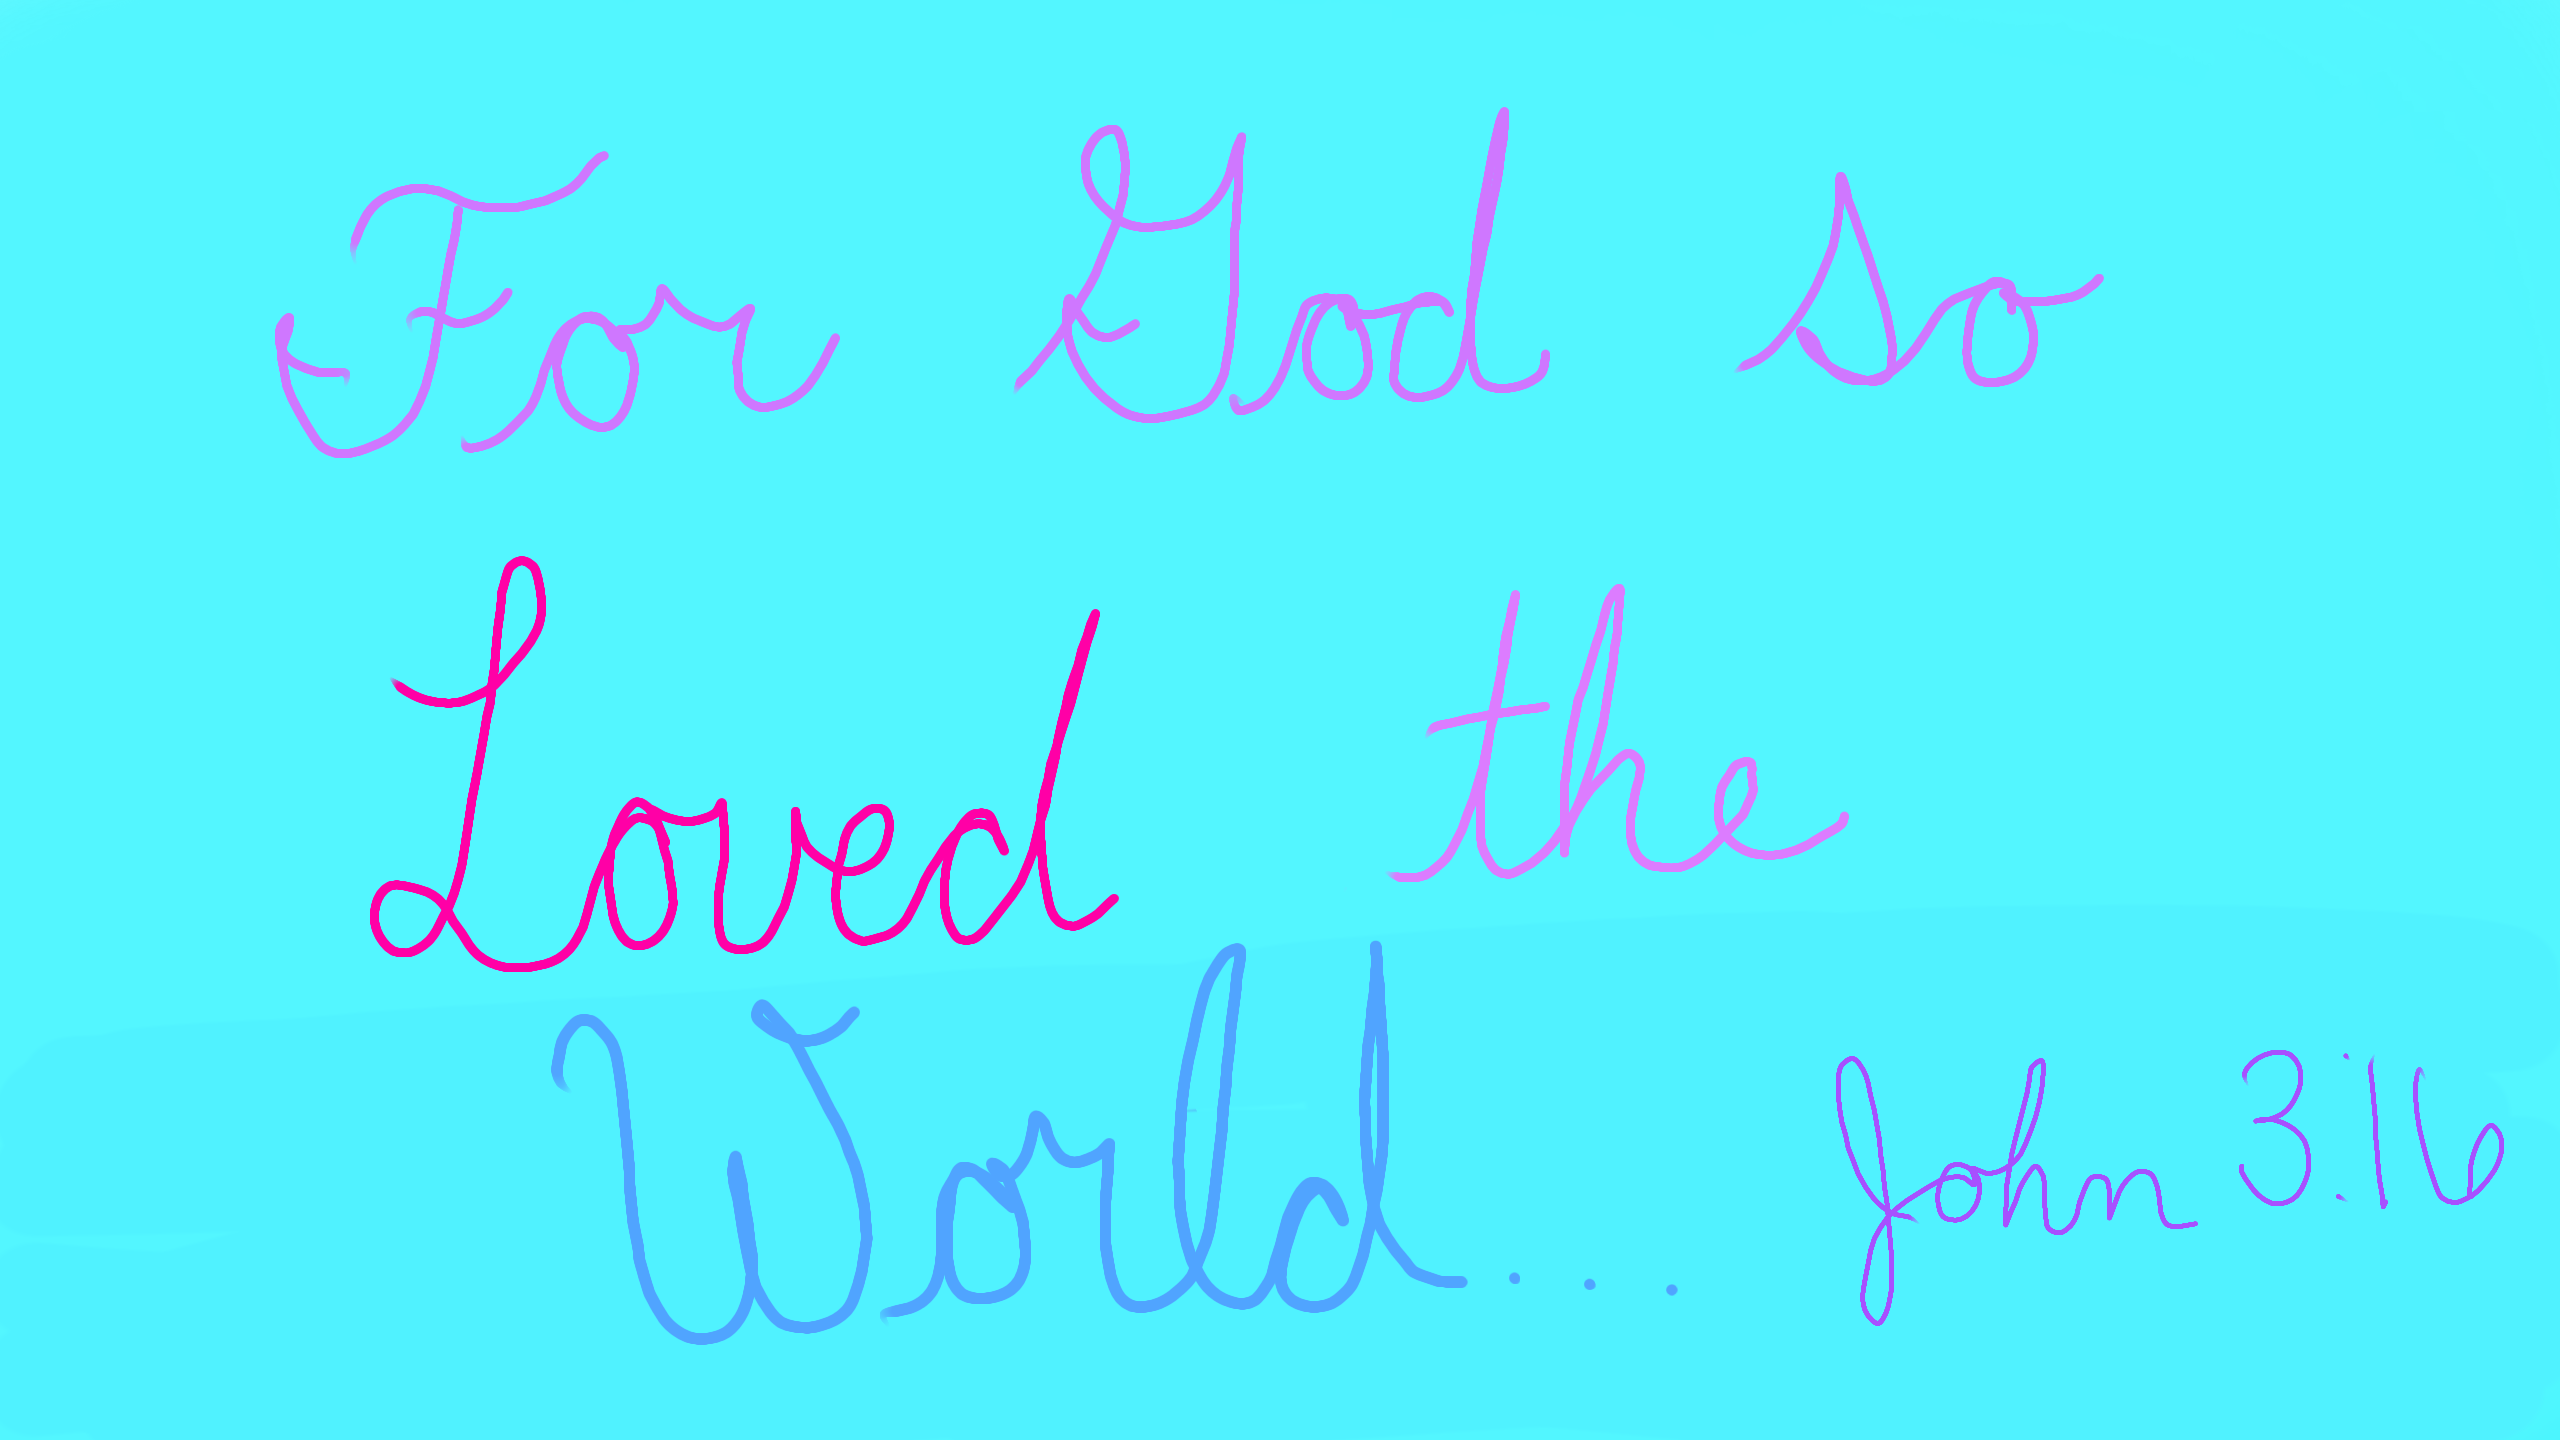 For God so
Loved the
World... John 3:16